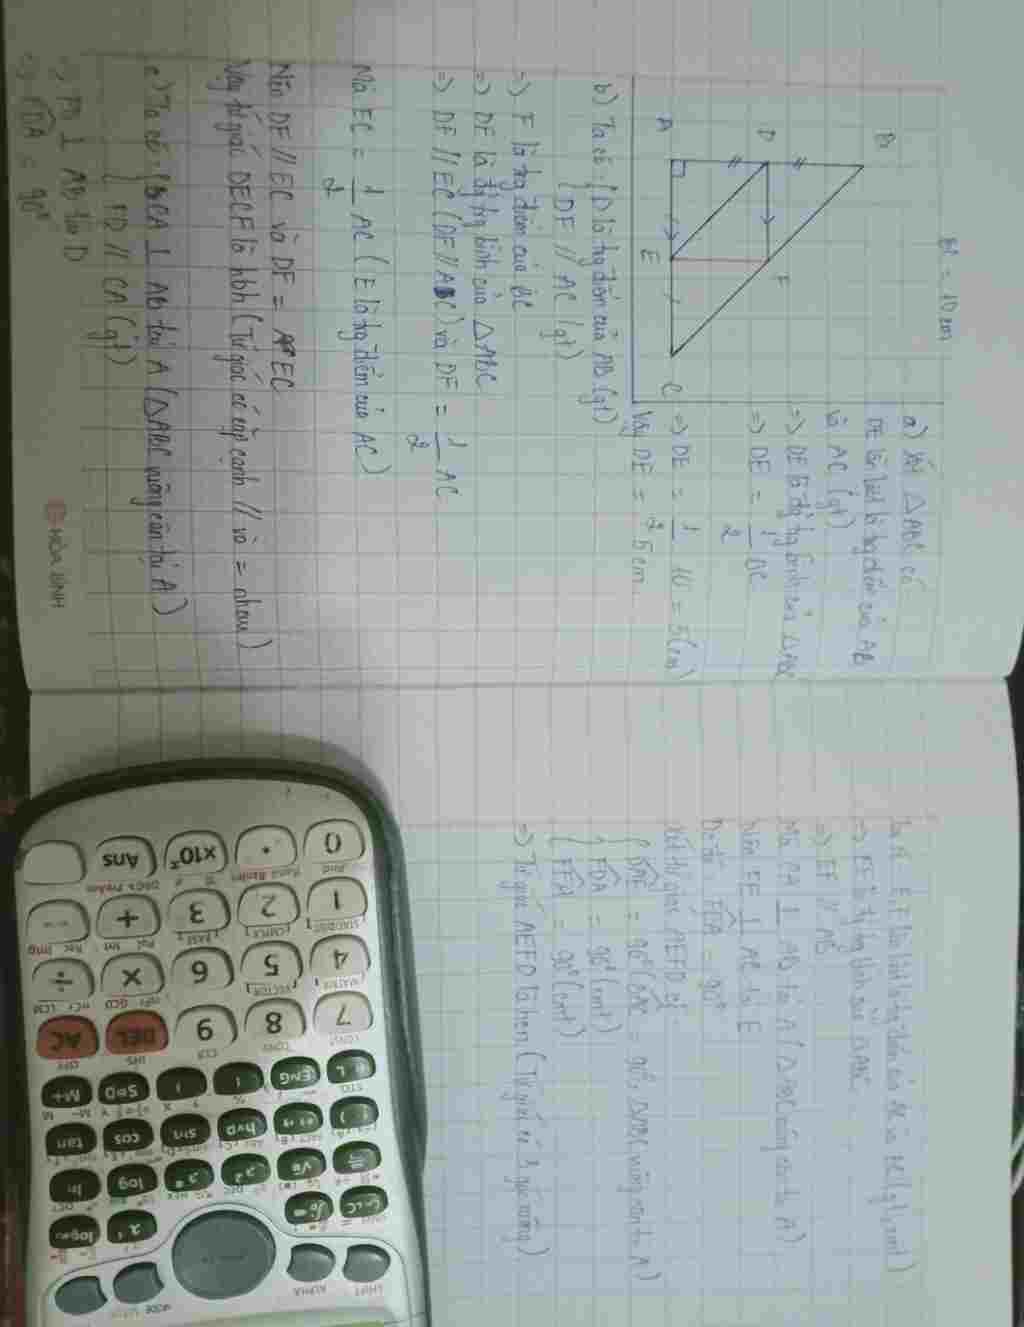 BC = 10 cm
B
D
F
A
E
C
a) Xét △ABC có
DE lần lượt là trg điểm của AB
và AC (gt)
=> DE là đg trg bình của △ABC
=> DE = 1/2 BC
=> DE = 1/2 10 = 5 (cm)
Vậy DE = 5 cm.
b) Ta có: { D là trg điểm của AB (gt)
{ DF // AC (gt)
=> F là trg điểm của BC
=> DF là đg trg bình của △ABC
=> DF // EC (DF // AC) và DF = 1/2 AC
Mà EC = 1/2 AC (E là trg điểm của AC)
Nên DF // EC và DF = EC
Vậy tứ giác DECF là hbh (Tứ giác có cặp cạnh // và = nhau)
c) Ta có: { CA ⊥ AB tại A (△ABC vuông cân tại A)
{ FD // CA (gt)
=> FD ⊥ AB tại D
=> FDA = 90°
HÒA BÌNH
Ta có E, F lần lượt là trg điểm của AC và BC (gt, cmt)
=> FE là đg trg bình của △ABC
=> EF // AB
Mà CA ⊥ AB tại A (△ABC vuông cân tại A)
Nên FE ⊥ AC tại E
Do đó = 90°
Xét tứ giác AEFD có
{ DAE = 90° (BAC = 90°, △ABC vuông cân tại A)
{ FDA = 90° (cmt)
{ FEA = 90° (cmt)
=> Tứ giác AEFD là hcn (Tứ giác có 3 góc vuông)
SHIFT
ALPHA
MODE
ENG
S⇔D
M+
hyp
sin
cos
tan
log
ln
7
8
9
DEL
AC
4
5
6
×
÷
1
2
3
+
−
0
.
×10ˣ
Ans